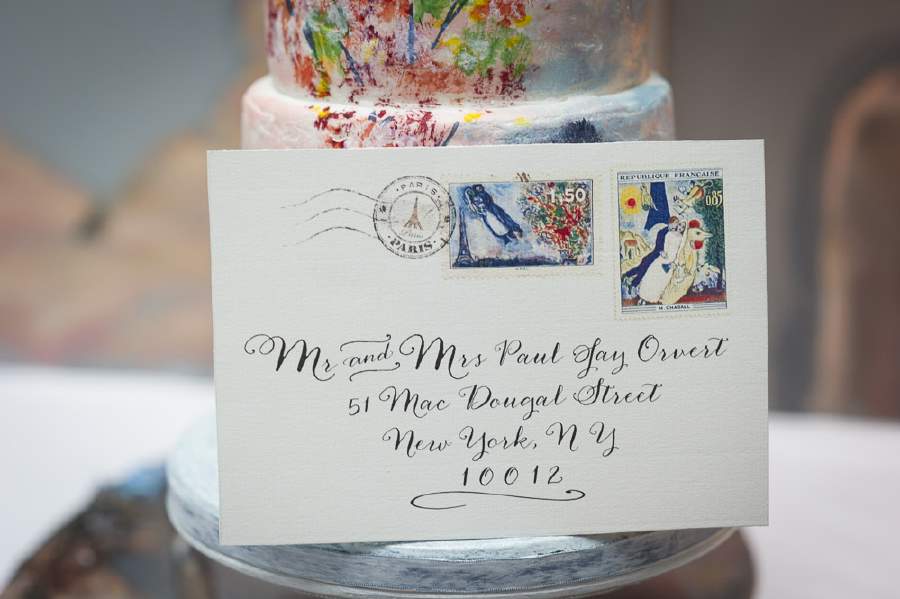 PARIS
Paris
PARIS
1.50
REPUBLIQUE FRANÇAISE
0.85
M. CHAGALL
Mr and Mrs Paul Jay Orvert
51 Mac Dougal Street
New York, N Y
10012